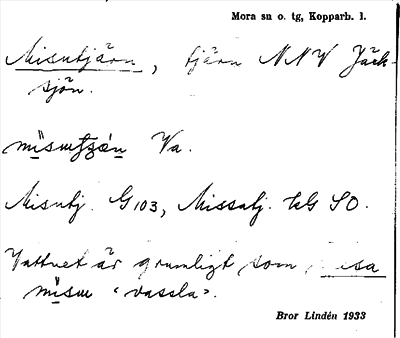 Mora sn o. tg, Kopparb. l.
Misutjärn, tjärn NNV Jäck-
sjön.
Va.
Misutj. G103, Missutj. kG SO.
Vattnet är grumligt som misa
misu "vassla".
Bror Lindén 1933